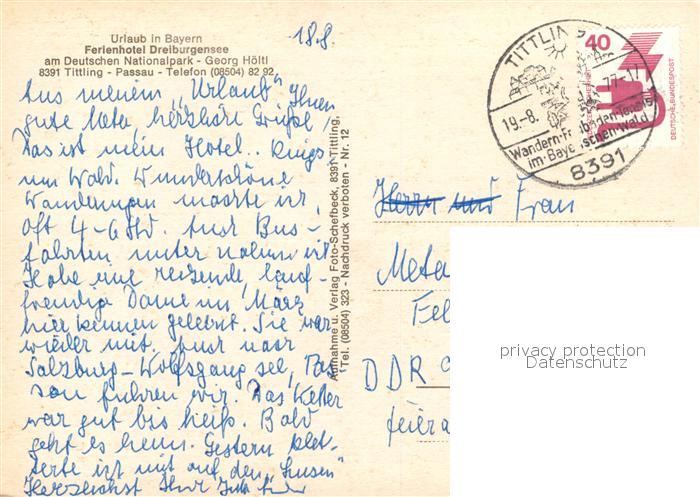 Urlaub in Bayern
Ferienhotel Dreiburgensee
am Deutschen Nationalpark - Georg Höltl
8391 Tittling - Passau - Telefon (08504) 82 92
18.8.
Aus meinem „Urlaub" Ihnen
gute Meta, herzliche Grüße!
Das ist mein Hotel.. Rings
um Wald. Wunderschöne
Wanderungen machte ich,
oft 4-6 Std. Auch Bus-
fahrten unternahm ich.
Habe eine reizende, lauf-
freudige Dame im März
hier kennen gelernt. Sie war
wieder mit. Auch nach
Salzburg-Wolfgang see, Pas-
sau fuhren wir. Das Wetter
war gut bis heiß. Bald
geht es heim. Gestern klet-
terte ich mit auf den „Lusen"
Herzlichst Ihre
Aufnahme u. Verlag Foto-Schefbeck, 8391 Tittling,
Tel. (08504) 323 - Nachdruck verboten - Nr. 12
TITTLING
19.-8. 77-17
Wandern
im Bayerischen Wald
8391
40
DEUTSCHE BUNDESPOST
Herrn und Frau
Meta
Fel
DDR
feiera
privacy protection
Datenschutz